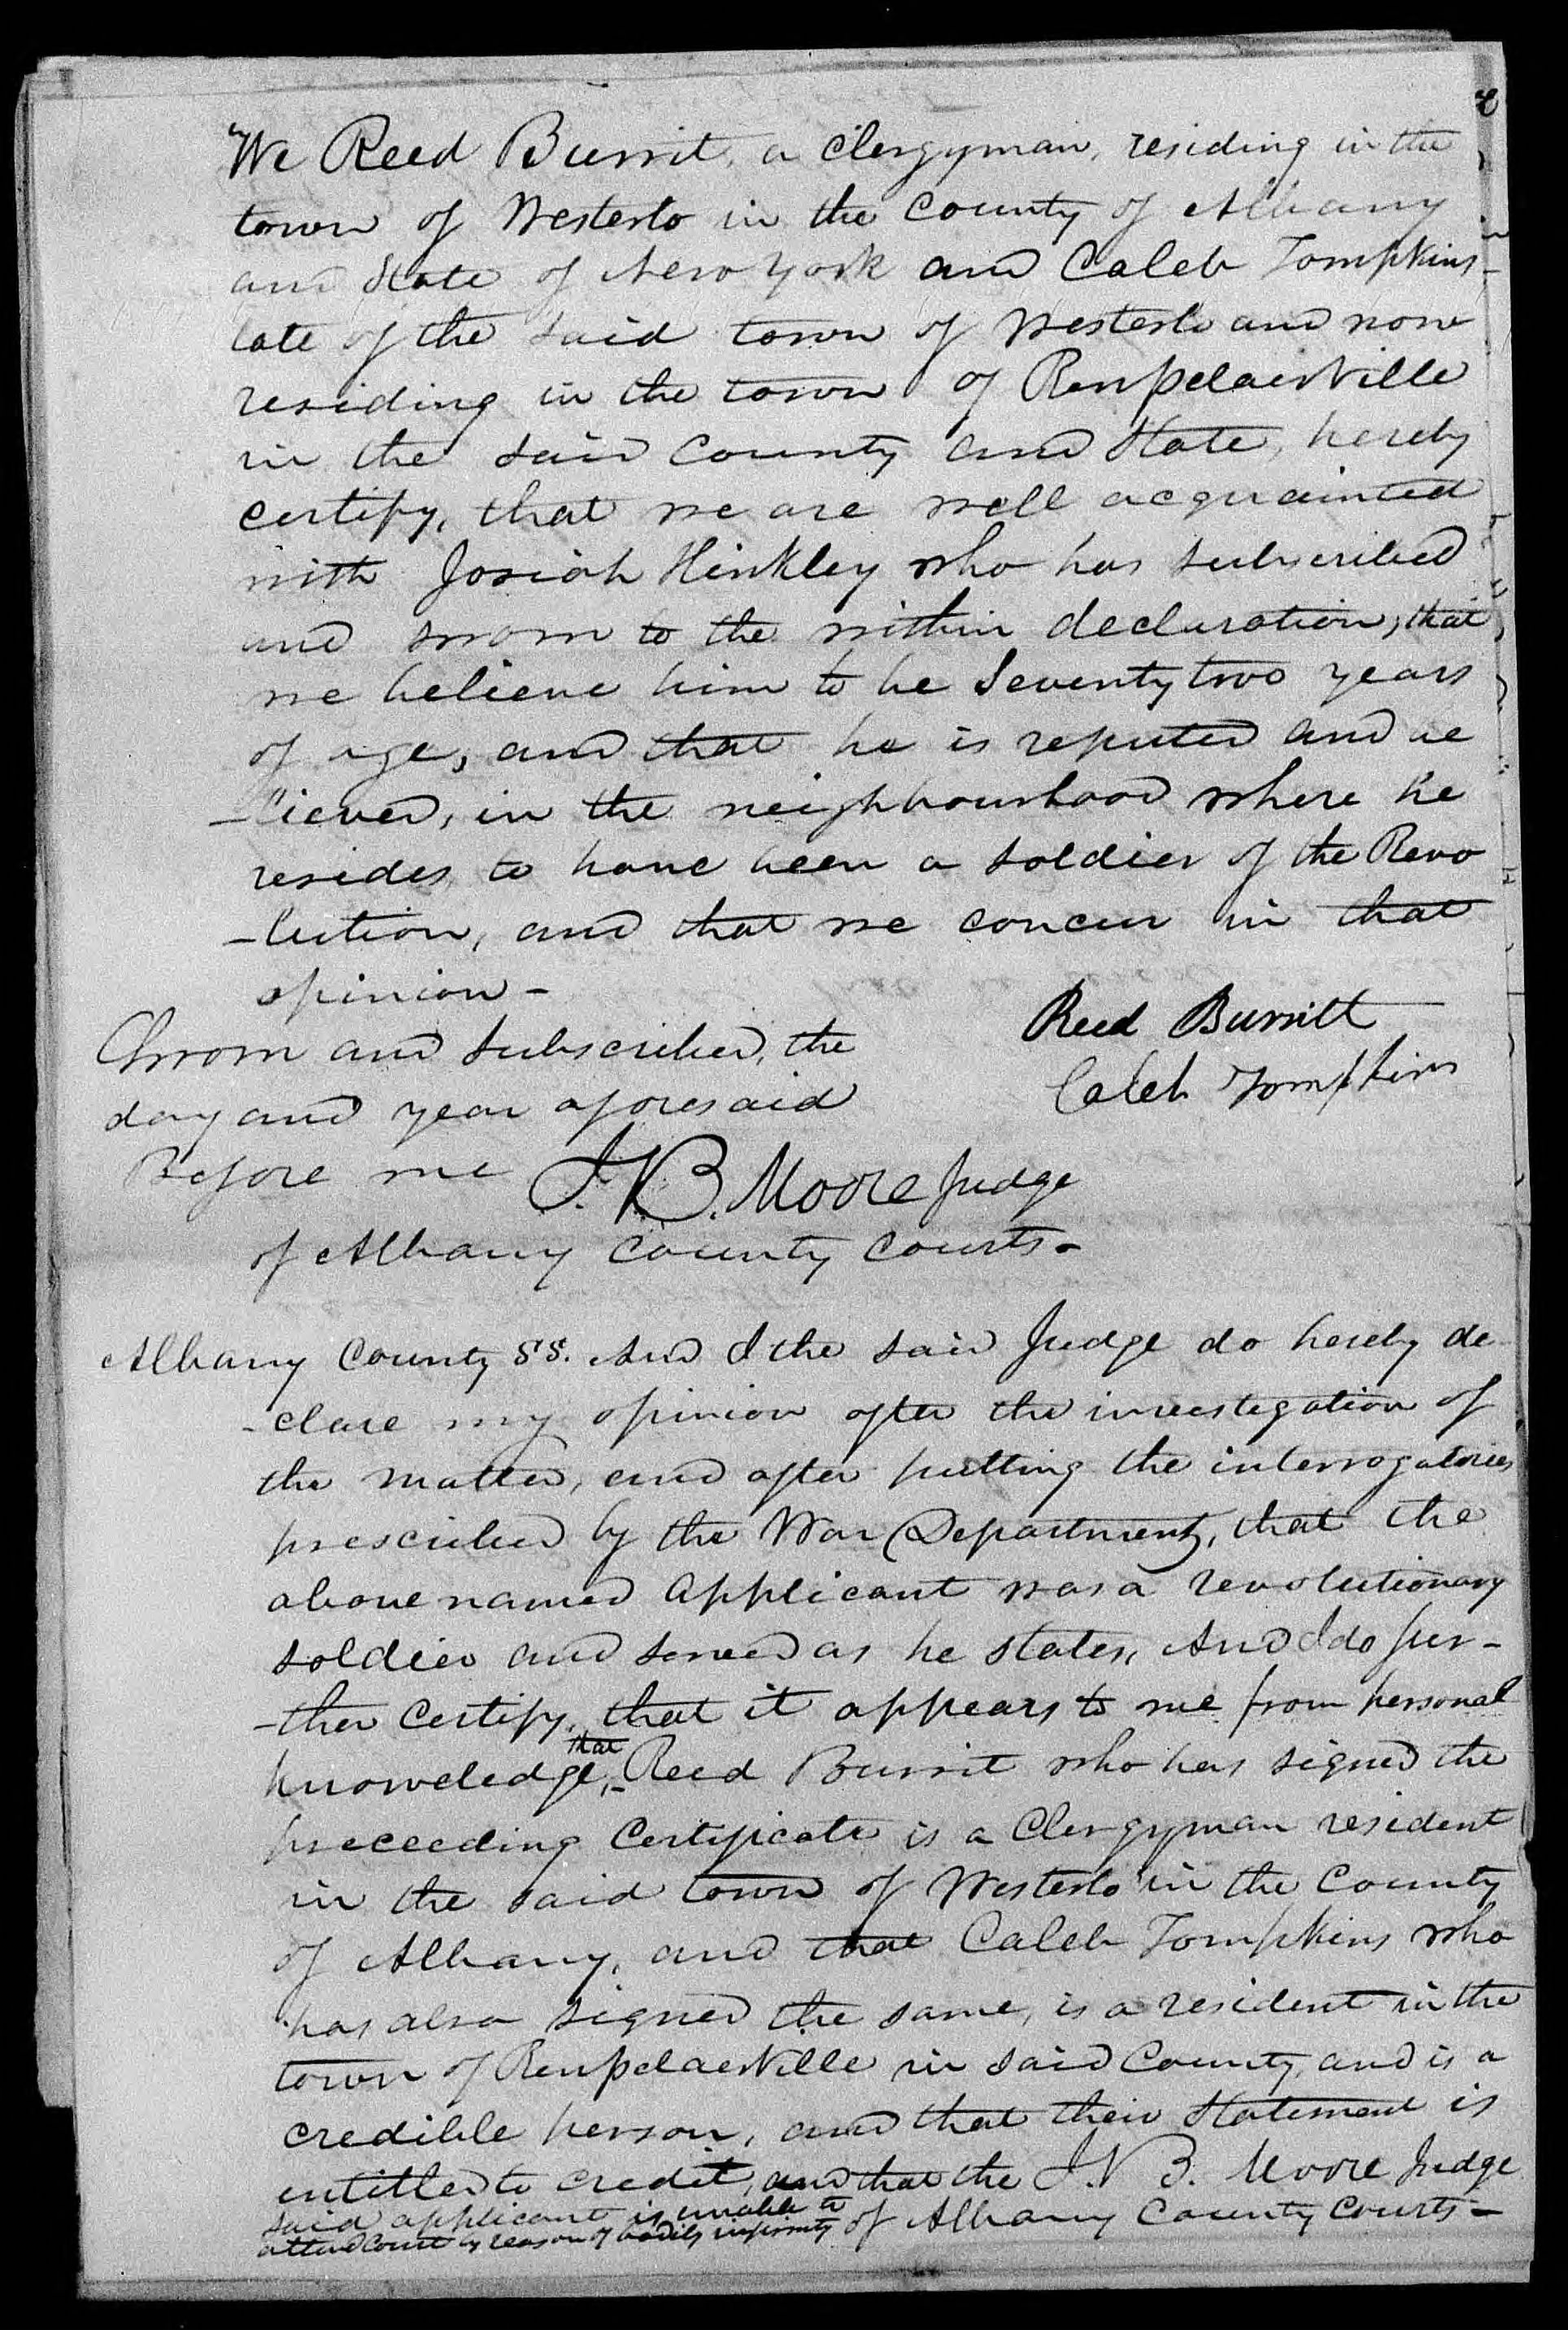 We Reed Burrit, a Clergyman, residing in the
town of Westerlo in the County of Albany
and State of New York and Caleb Tompkins
late of the said town of Westerlo and now
residing in the town of Rensselaerville
in the said County and State, hereby
certify, that we are well acquainted
with Josiah Hinkley who has subscribed
and sworn to the within declaration, that
we believe him to be Seventy two years
of age, and that he is reputed and be
-lieved, in the neighbourhood where he
resides, to have been a soldier of the Revo
-lution, and that we concur in that
opinion -
Reed Burritt
Caleb Tompkins
Sworn and subscribed, the
day and year aforesaid
Before me J. V. B. Moore Judge
of Albany County Courts -
Albany County SS. And I the said Judge do hereby de
-clare my opinion after the investigation of
the matter, and after putting the interrogatories
prescribed by the War Department, that the
above named applicant was a revolutionary
soldier and served as he states, And I do fur-
-ther certify, that it appears to me from personal
knowledge, that Reed Burrit who has signed the
preceeding Certificate is a Clergyman resident
in the said town of Westerlo in the County
of Albany, and that Caleb Tompkins who
has also signed the same, is a resident in the
town of Rensselaerville in said County, and is a
credible person, and that their Statement is
entitled to credit, and that the
said applicant is unable to
attend Court by reason of bodily infirmity
J. V. B. Moore Judge
of Albany County Courts -